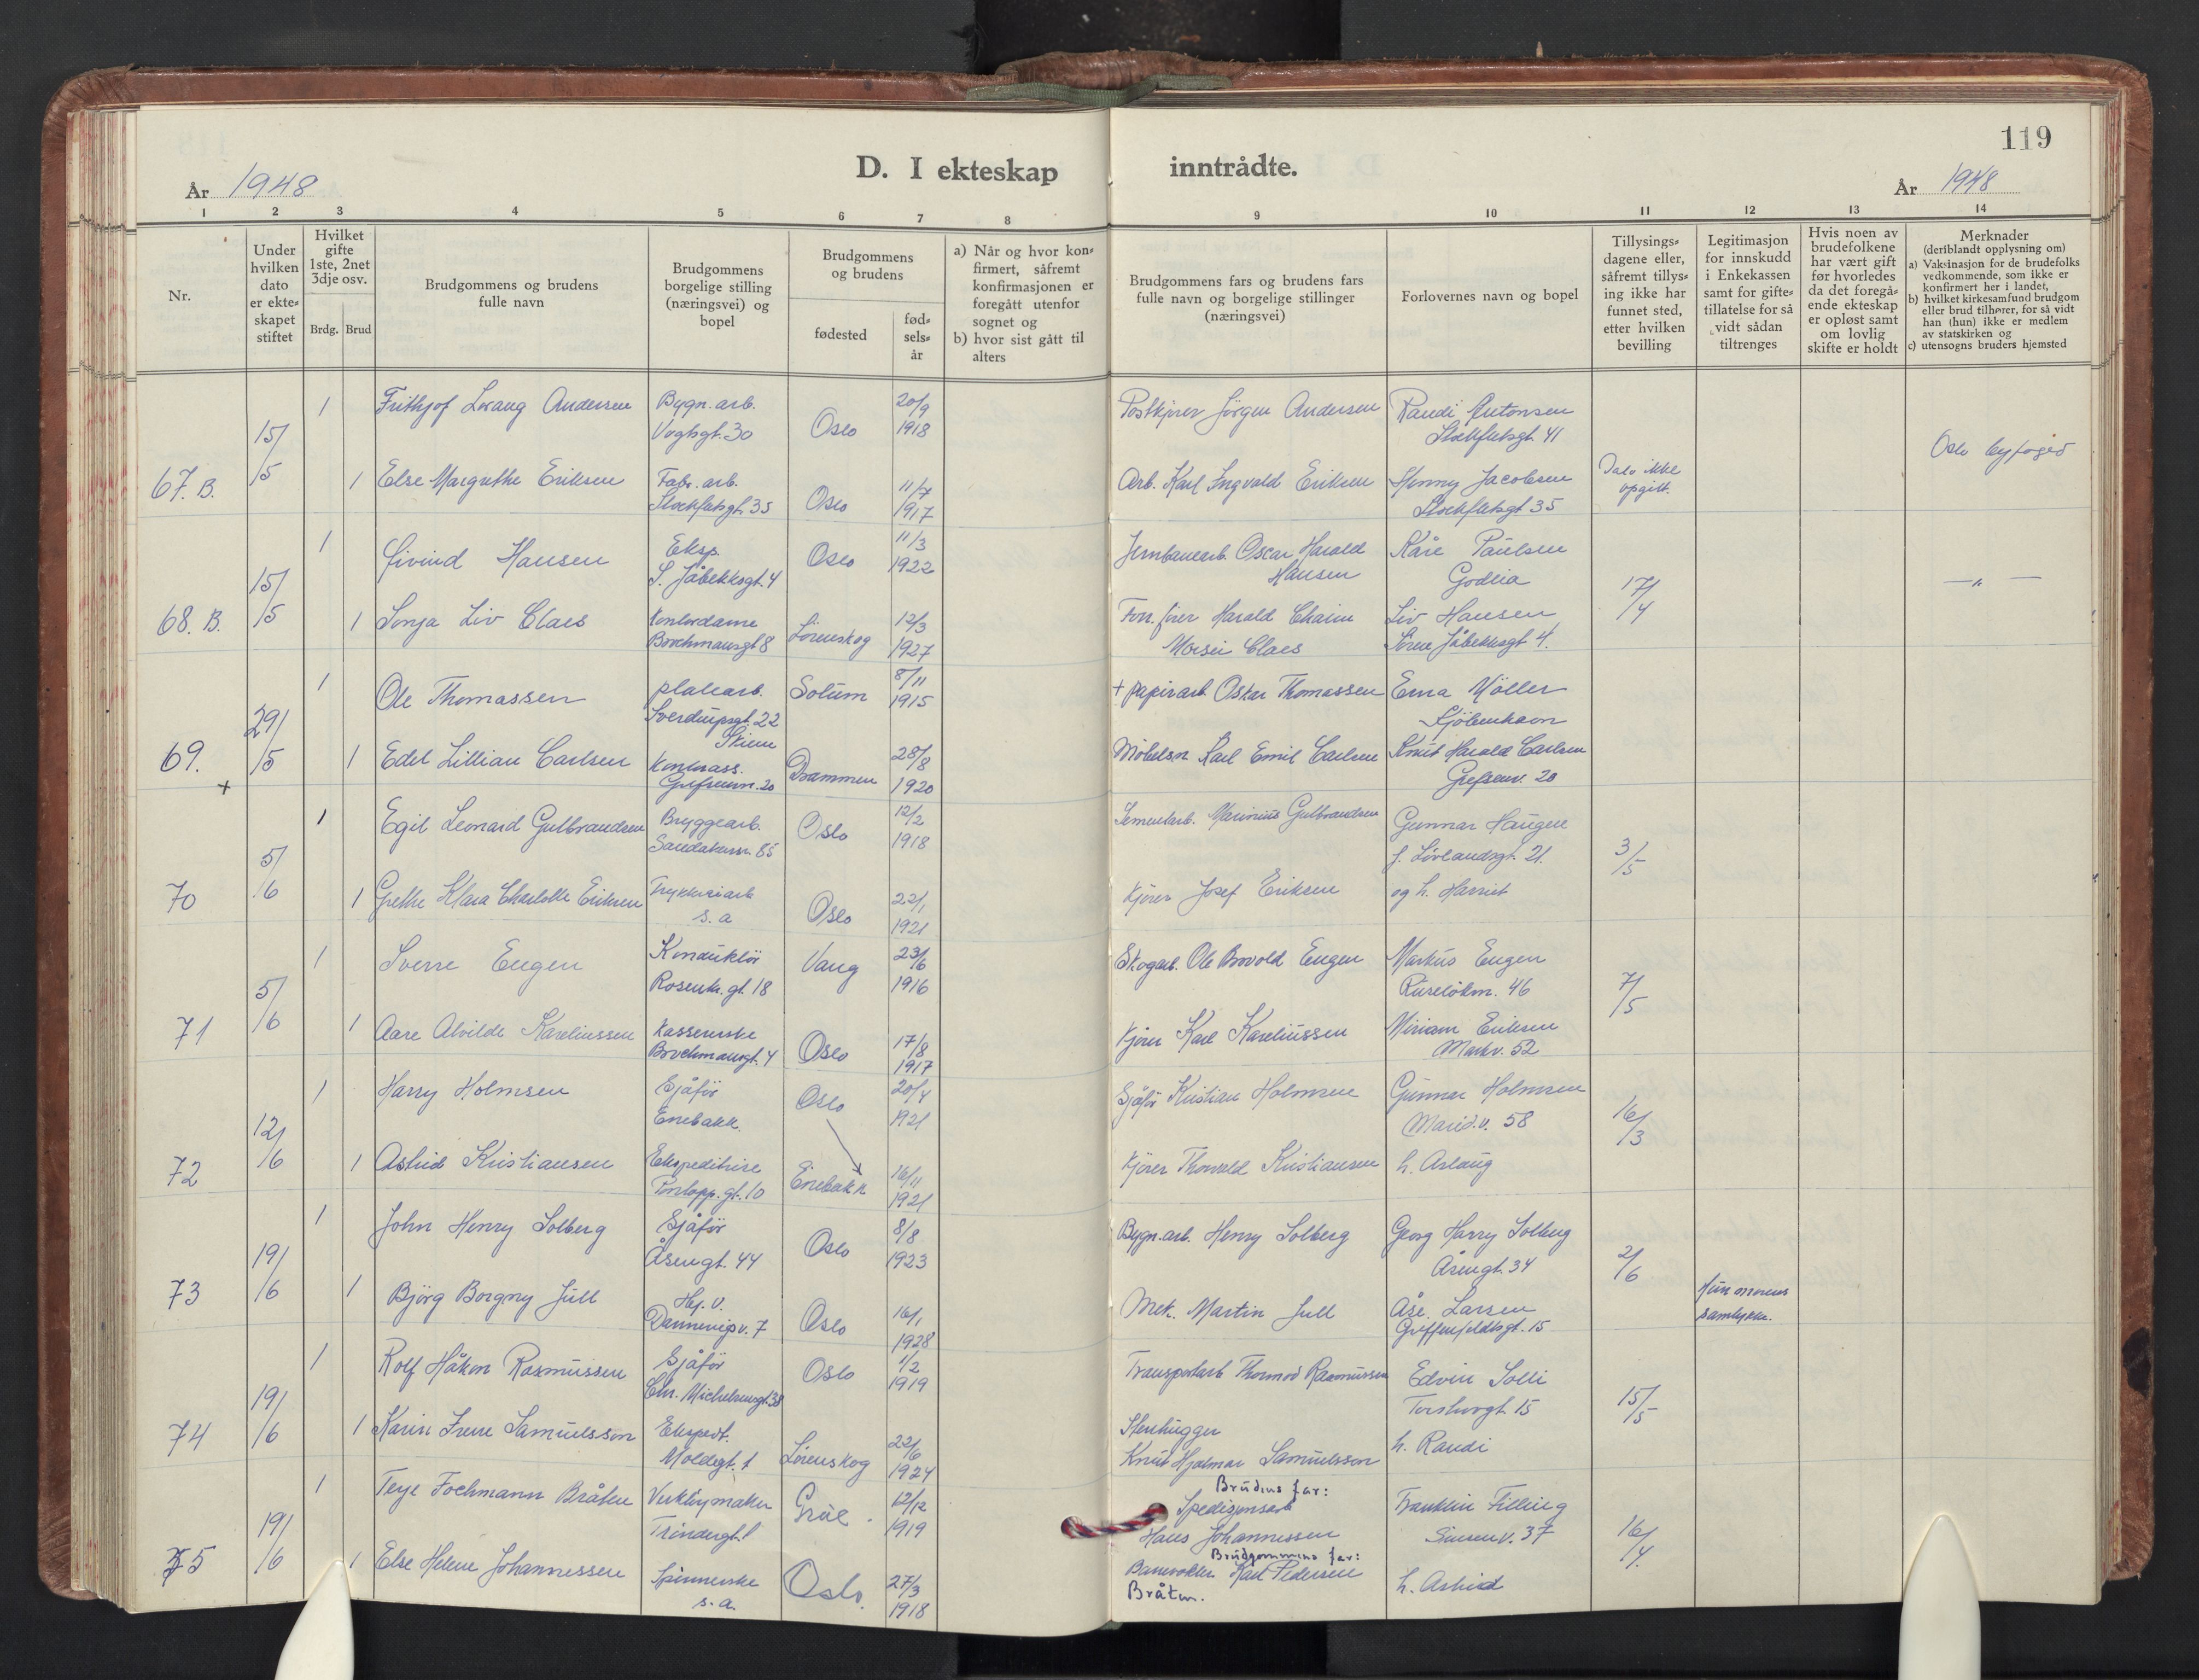 119
D. I ekteskap inntrådte.
År 1948
År 1948
1 2 3 4 5 6 7 8 9 10 11 12 13 14
Nr.
Under hvilken dato er ekteskapet stiftet
Hvilket gifte 1ste, 2net 3dje osv.
Brdg. Brud
Brudgommens og brudens fulle navn
Brudgommens borgelige stilling (næringsvei) og bopel
Brudgommens og brudens
fødested
fødselsår
a) Når og hvor konfirmert, såfremt konfirmasjonen er foregått utenfor sognet og
b) hvor sist gått til alters
Brudgommens fars og brudens fars fulle navn og borgelige stillinger (næringsvei)
Forlovernes navn og bopel
Tillysingsdagene eller, såfremt tillysing ikke har funnet sted, etter hvilken bevilling
Legitimasjon for innskudd i Enkekassen samt for giftetillatelse for så vidt sådan tiltrenges
Hvis noen av brudefolkene har vært gift før hvorledes da det foregående ekteskap er opløst samt om lovlig skifte er holdt
Merknader
(deriblandt opplysning om)
a) Vaksinasjon for de brudefolks vedkommende, som ikke er konfirmert her i landet,
b) hvilket kirkesamfund brudgom eller brud tilhører, for så vidt han (hun) ikke er medlem av statskirken og
c) utensogns bruders hjemsted
67. B. 15/5
1 Frithjof Andersen Bygn. arb. Vogtsgt. 30 Oslo 20/9 1918 Postkjører Jörgen Andersen Randi Antonsen Stockfletsgt. 41
1 Else Margrethe Eriksen Fabr. arb. Stockfletsgt. 35 Oslo 11/7 1917 Arb. Karl Ingvald Eriksen Henny Jacobsen Stockfletsgt 35 Dato ikke opgitt. Oslo byfoged
68. B. 15/5
1 Øivind Hansen Eksp. S. Jåbekksgt. 4 Oslo 11/3 1922 Jernbanearb. Oscar Harald Hansen Kåre Paulsen Godlia 17/4 — " —
1 Sonja Liv Claes Kontordame Borchmansgt 8 Lörenskog 12/3 1927 Forr. fører Harald Chaim Claes Liv Hansen Sören Jåbekksgt 4.
69. + 29/5
1 Ole Thomassen platearb. Sverdrupsgt. 22 Skien Solum 8/11 1915 + papirarb. Oskar Thomassen Erna Möller Kjöbenhavn
1 Edel Lillian Carlsen Kontorass. Grefsenv. 20 Drammen 28/8 1920 Möbelsn. Karl Emil Carlsen Knut Harald Carlsen Grefsenv. 20
70 5/6
1 Egil Leonard Gulbrandsen Bryggearb. Sandakerv. 85 Oslo 12/2 1918 Sementarb. Marinius Gulbrandsen Gunnar Haugen J. Lövlandsgt. 21. 3/5
1 Grethe Klara Charlotte Eriksen Trykkeriarb s. a Oslo 22/1 1921 Kjörer Josef Eriksen og h. Harriet
71 5/6
1 Sverre Engen Konduktör Rosenkr. gt. 18 Vang 23/6 1916 Skogarb. Ole Brovold Engen Markus Engen Ruselökv. 46 7/5
1 Aase Alvilde Kareliussen Kassererske Borchmansgt. 4 Oslo 17/8 1917 Kjörer Karl Kareliussen Miriam Eriksen Markv. 52
72 12/6
1 Harry Holmsen Sjåför Enebakk. Oslo 20/4 1921 Sjåför Kristian Holmsen Gunnar Holmsen Marid.v. 58 16/3
1 Astrid Kristiansen Ekspeditrise Torlopp. gt. 10 Enebakk 16/11 1921 Kjörer Thorvald Kristiansen h. Aslaug
73 19/6
1 John Henry Solberg Sjåför Åsengt. 44 Oslo 8/8 1923 Bygn. arb. Henry Solberg Georg Harry Solberg Åsengt. 34 2/6
1 Björg Borgny Jull Hj. v. Dannevigsv. 7 Oslo 16/1 1928 Mek. Martin Jull Åse Larsen Griffenfeldtsgt. 15 Hun morens samtykke.
74 19/6
1 Rolf Håkon Rasmussen Sjåför Chr. Michelsensgt. 38 Oslo 1/2 1919 Transportarb Thormod Rasmussen Edvin Solli Torshovgt. 15 15/5
1 Karin Irene Samuelsson Ekspedt. Moldegt. 1 Lörenskog 22/6 1924 Stenhugger Knut Hjalmar Samuelsson h. Randi
75 19/6
1 Terje Fochmann Bråten Verktøymaker Trindergt. 1 Grue. 12/12 1919 Brudens far: Spedisjonsarb Hans Johannessen Franklin Filling Sinsenv. 37 16/4.
1 Else Helene Johannessen Spinnerske s. a. Oslo. 27/3 1918 Brudgommens far: Banevokter Karl Pedersen Bråten. h. Astrid